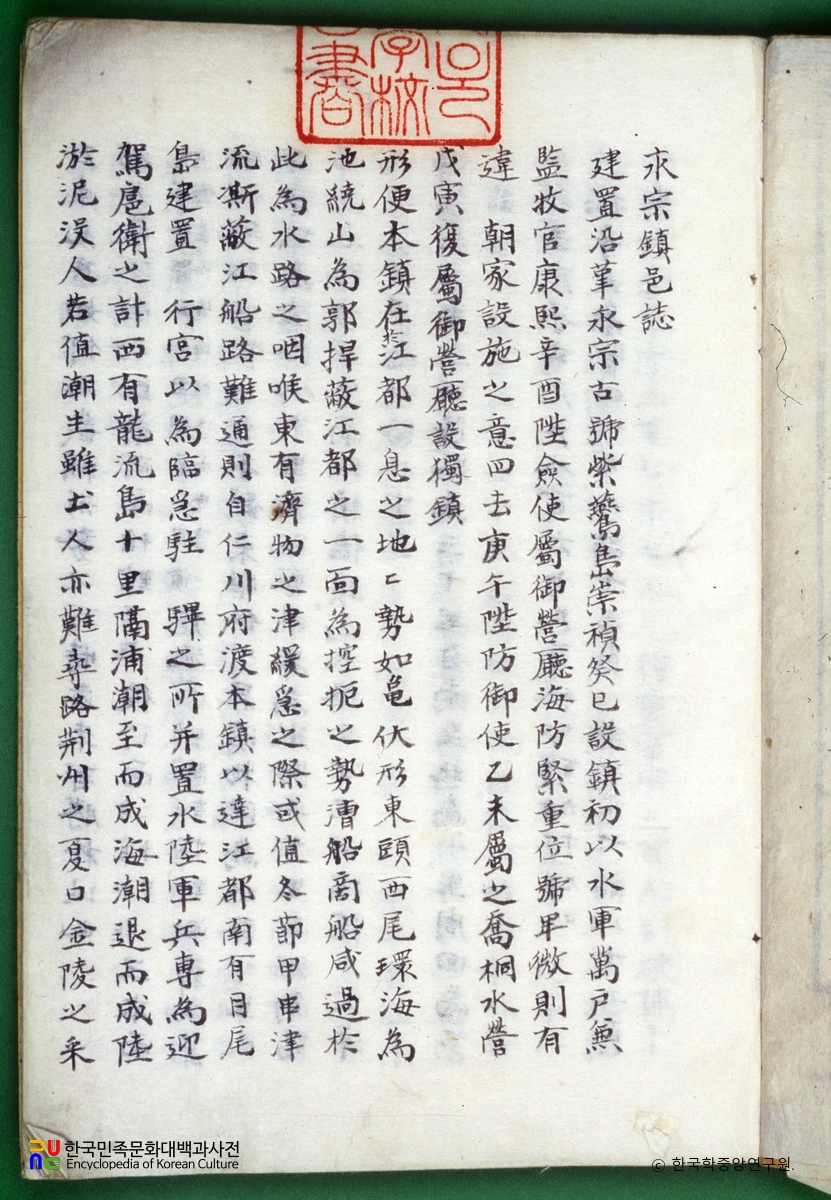 永宗鎮邑誌
建置沿革永宗古號紫鷰島崇禎癸巳設鎮初以水軍萬戶無
監牧官康熙辛酉陞僉使屬御營廳海防緊重位號卑微則有
違 朝家設施之意四去庚午陞防御使乙未屬之喬桐水營
戊寅復屬御營廳設獨鎮
形便本鎮在於江都一息之地〻勢如龜伏形東頭西尾環海為
池繞山為郭捍蔽江都之一面為控扼之勢漕船商船咸過於
此為水路之咽喉東有濟物之津緩急之際或值冬節甲串津
流澌蔽江船路難通則自仁川府渡本鎮以達江都南有月尾
島建置 行宮以為臨急駐 蹕之所并置水陸軍兵專為迎
駕扈衛之計西有龍流島十里隔浦潮至而成海潮退而成陸
淤泥沒人若值潮生雖土人亦難尋路荆州之夏口金陵之采
한국민족문화대백과사전
Encyclopedia of Korean Culture
© 한국학중앙연구원.